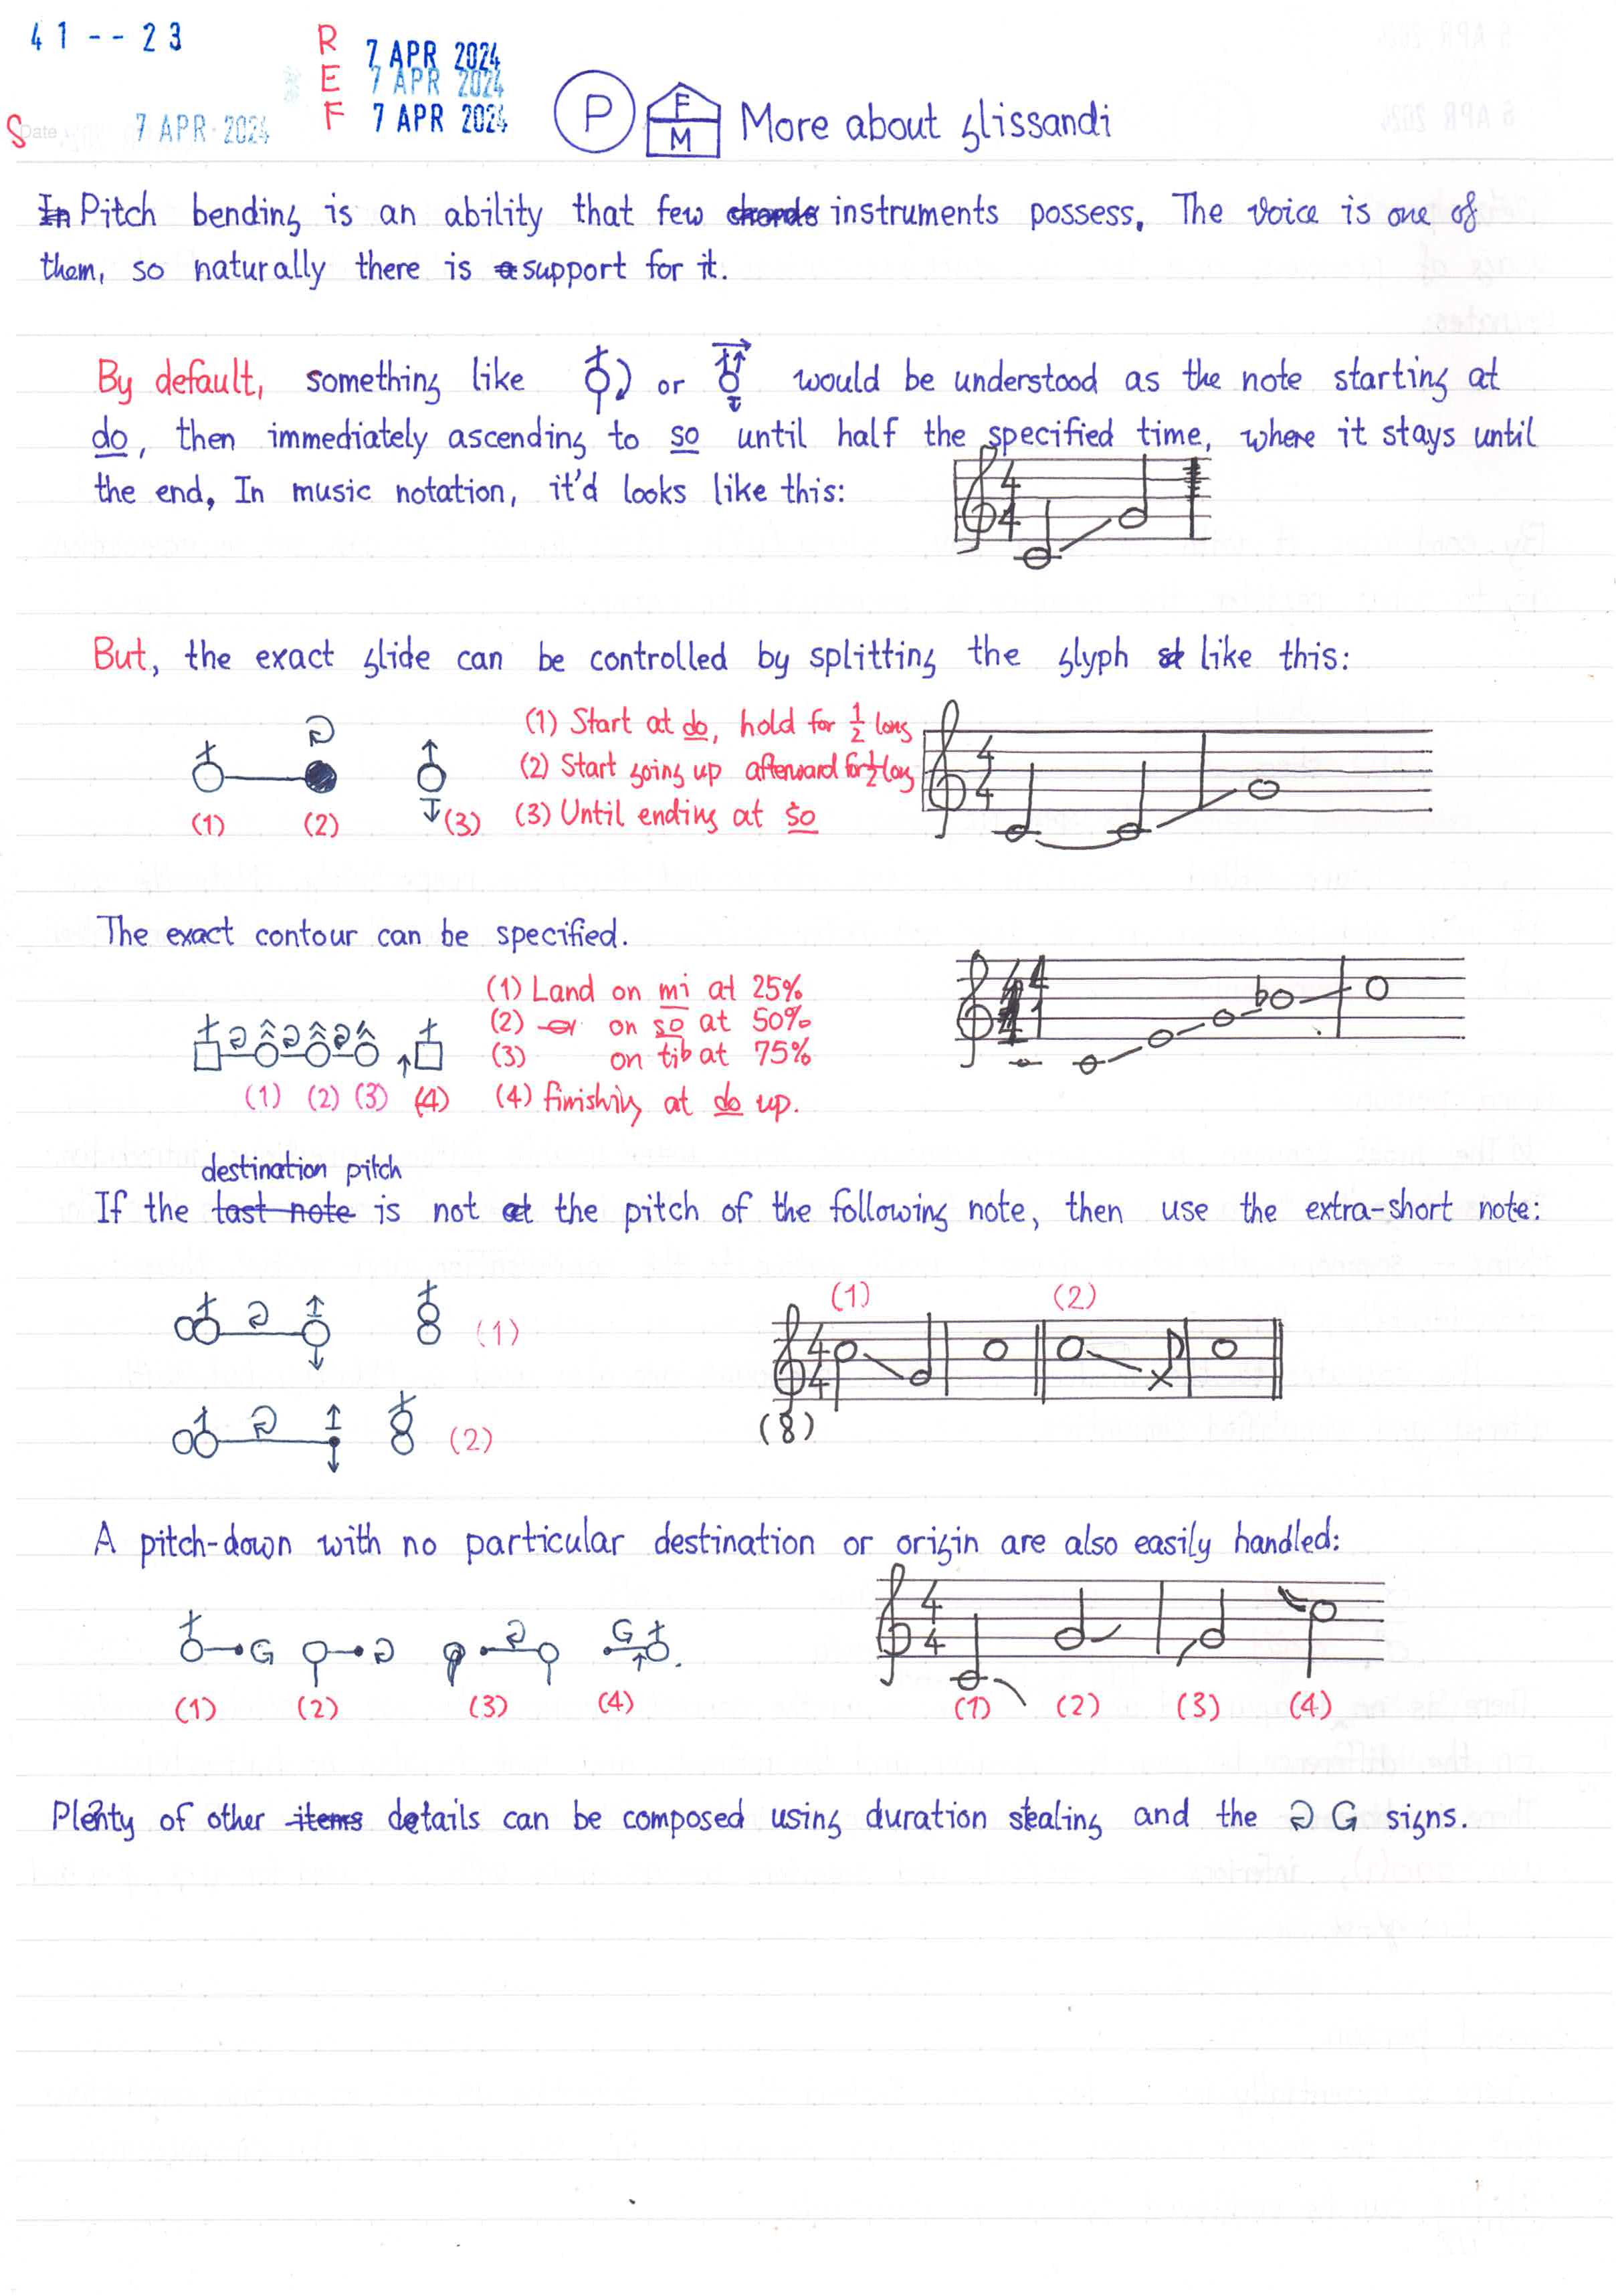 41--23
R E F
7 APR 2024
7 APR 2024
7 APR 2024
S Date 7 APR 2024
P F M More about glissandi
In Pitch bending is an ability that few chords instruments possess. The voice is one of
them, so naturally there is a support for it.
By default, something like or would be understood as the note starting at
do, then immediately ascending to so until half the specified time, where it stays until
the end. In music notation, it'd looks like this:
4 4
But, the exact glide can be controlled by splitting the glyph like this:
(1) Start at do, hold for 1/2 long
(2) Start going up afterward for 1/2 long
(3) Until ending at so
(1) (2) (3)
4 4
The exact contour can be specified.
(1) Land on mi at 25%
(2) on so at 50%
(3) on tib at 75%
(4) finishing at do up.
(1) (2) (3) (4)
destination pitch
If the last note is not at the pitch of the following note, then use the extra-short note:
(1)
(2)
(1) (2)
4 4
(8)
A pitch-down with no particular destination or origin are also easily handled:
G G
(1) (2) (3) (4)
4 4
(1) (2) (3) (4)
Plenty of other items details can be composed using duration stealing and the G signs.